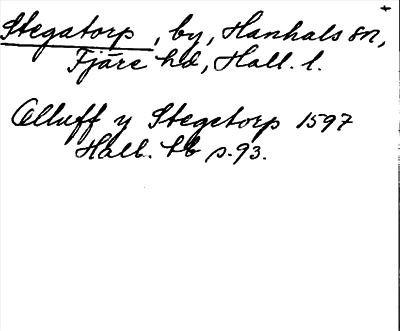 Stegatorp, by, Hanhals sn,
Fjäre hd, Hall. l.
Olluff y Stegetorp 1597
Hall. tb s. 93.